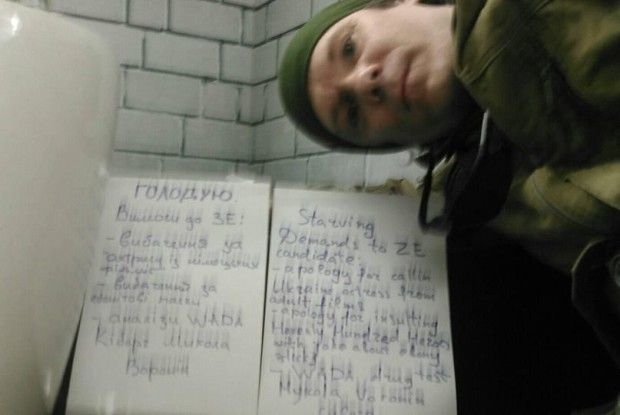 ГОЛОДУЮ.
Вимоги до ЗЕ:
- вибачення за
актрису із німецьких
фільмів
- вибачення за
ебонітові палки
- аналізи WADA
Кіборг Микола
Воронін
Starving
Demands to ZE
candidate:
- apology for callin
Ukraine actress from
adult films
- apology for insulting
Heavenly Hundred Heroes
with joke about ebony
sticks
- WADA drug test
Mykola Voronin